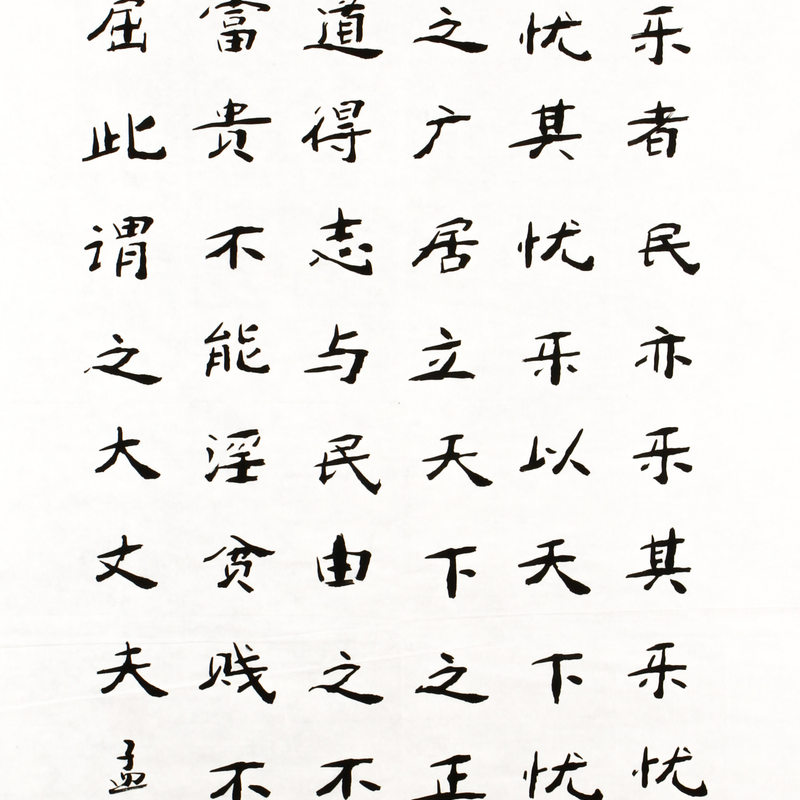 乐者民亦乐其乐忧
忧其忧乐以天下忧
之广居立天下之正
道得志与民由之不
富贵不能淫贫贱不
屈此谓之大丈夫孟